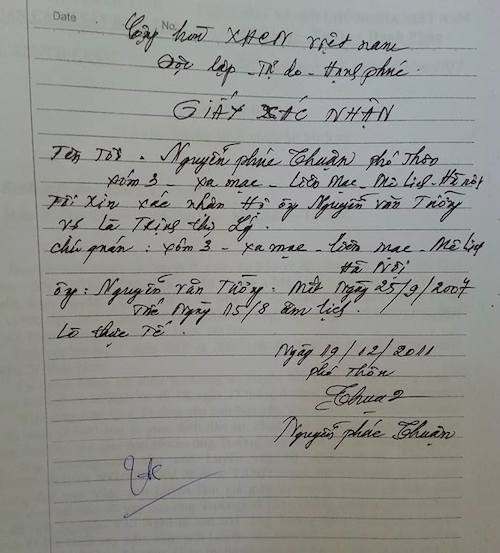 Date
No.
Cộng hòa XHCN Việt nam
Độc lập - Tự do - Hạnh phúc.
GIẤY XÁC NHẬN
Tên Tôi. Nguyễn phúc Thuận phó thôn
xóm 3 - xa mạc - Liên Mạc - Mê Linh - Hà nội
Tôi xin xác nhận Hộ ông Nguyễn văn Tường
vợ là Trịnh thị Lý.
chú quán: xóm 3 - xa mạc - liên mạc - Mê Linh
Hà Nội
ông: Nguyễn văn Tường: Mất ngày 25/9/2007
Tức Ngày 15/8 âm lịch.
Là thực Tế.
Ngày 19/12/2011
phó Thôn
Thuận
Nguyễn phúc Thuận